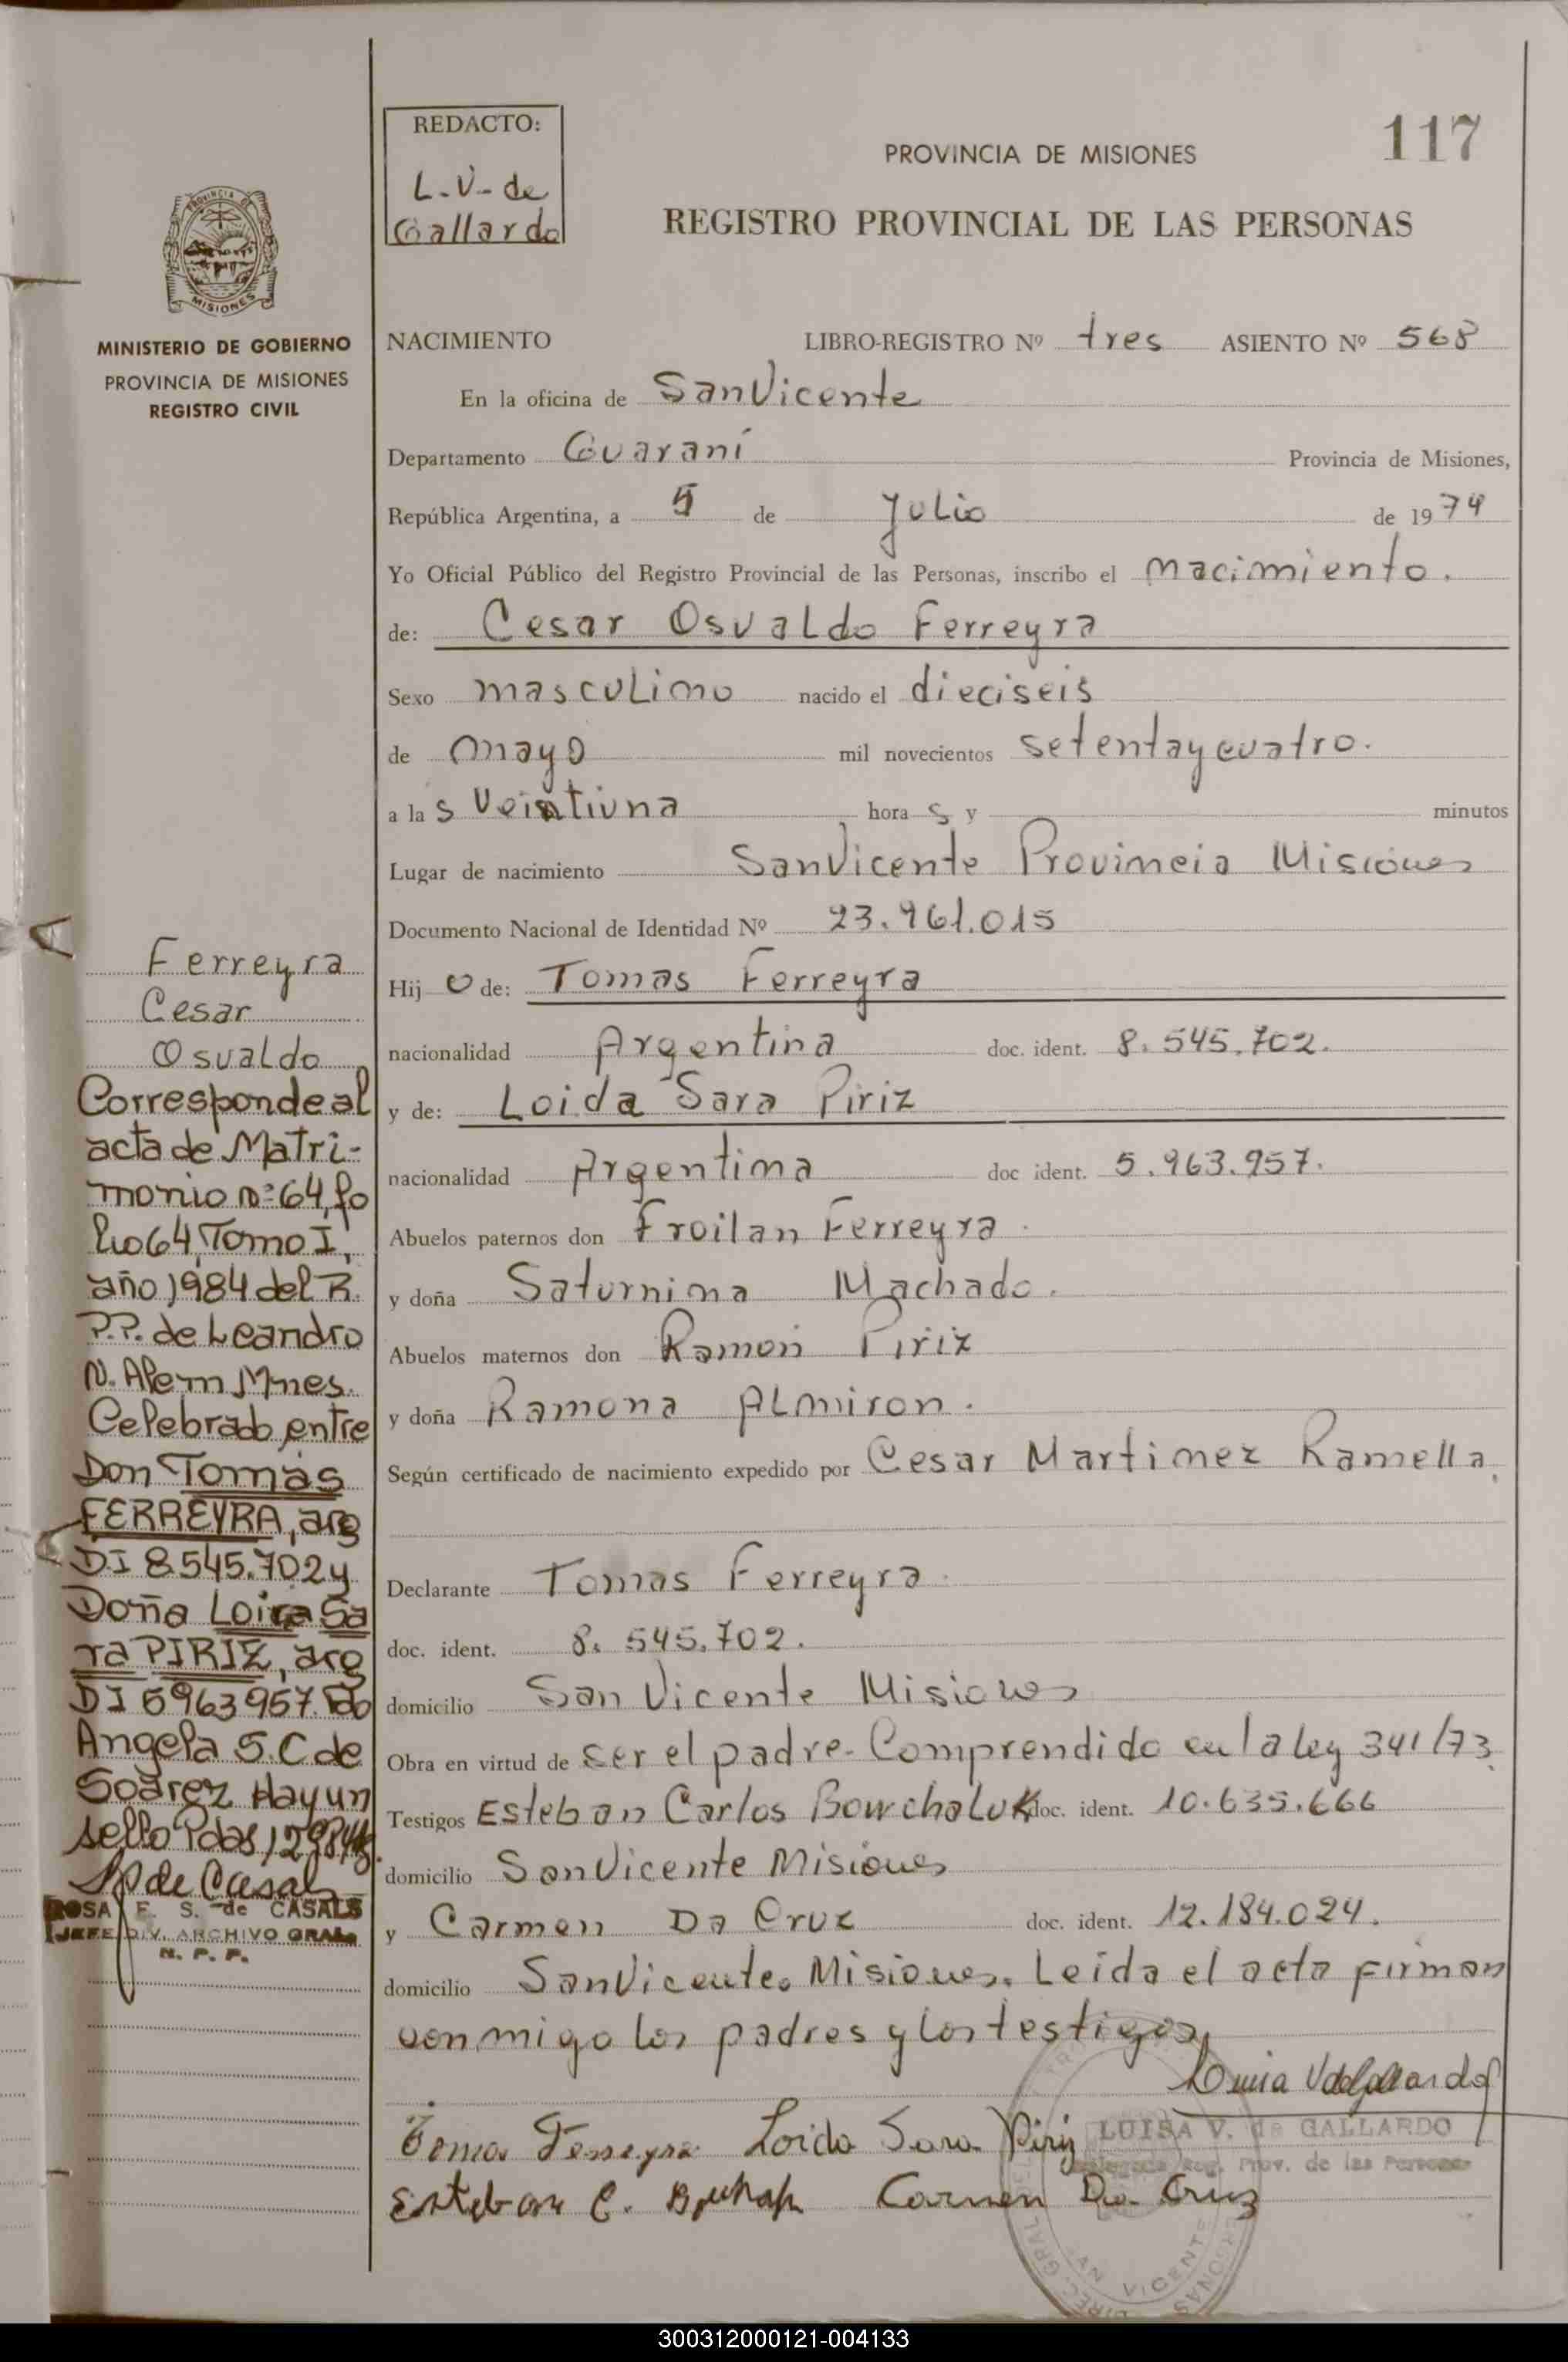 117
REDACTO:
L.V. de
Gallardo
PROVINCIA DE MISIONES
REGISTRO PROVINCIAL DE LAS PERSONAS
PROVINCIA DE
MISIONES
MINISTERIO DE GOBIERNO
PROVINCIA DE MISIONES
REGISTRO CIVIL
NACIMIENTO LIBRO-REGISTRO Nº tres ASIENTO Nº 568
En la oficina de San Vicente
Departamento Guaraní Provincia de Misiones,
República Argentina, a 5 de Julio de 1974
Yo Oficial Público del Registro Provincial de las Personas, inscribo el nacimiento.
de: Cesar Osvaldo Ferreyra
Sexo masculino nacido el dieciseis
de mayo mil novecientos setenta y cuatro.
a las veintiuna horas y minutos
Lugar de nacimiento San Vicente Provincia Misiones
Documento Nacional de Identidad Nº 23.961.015
Hijo de: Tomas Ferreyra
nacionalidad Argentina doc. ident. 8.545.702.
y de: Loida Sara Piriz
nacionalidad Argentina doc ident. 5.963.957.
Abuelos paternos don Froilan Ferreyra
y doña Saturnina Machado.
Abuelos maternos don Ramon Piriz
y doña Ramona Almiron.
Según certificado de nacimiento expedido por Cesar Martinez Ramella.
Declarante Tomas Ferreyra
doc. ident. 8.545.702.
domicilio San Vicente Misiones
Obra en virtud de ser el padre. Comprendido en la ley 341/73.
Testigos Esteban Carlos Bowchaluk doc. ident. 10.635.666
domicilio San Vicente Misiones
y Carmen Da Cruz doc. ident. 12.184.024.
domicilio San Vicente. Misiones. Leida el acta firman
conmigo los padres y los testigos,
Tomas Ferreyra Loida Sara Piriz
Esteban C. Carmen Da Cruz
LUISA V. de GALLARDO
Reg. Prov. de las Personas
Ferreyra
Cesar
Osvaldo
Corresponde al
acta de Matri-
monio nº 64, fo
lio 64, Tomo I,
año 1984 del R.
P.P. de Leandro
N. Alem Mnes.
Celebrado entre
Don Tomas
FERREYRA, arg
DI 8.545.702 y
Doña Loida Sa
ra PIRIZ, arg
DI 5963957. Fdo
Angela S. C de
Soarez Hay un
sello Pdas,
de Casals
ROSA F. S. de CASALS
JEFE DIV. ARCHIVO GRAL.
R. P. P.
300312000121-004133